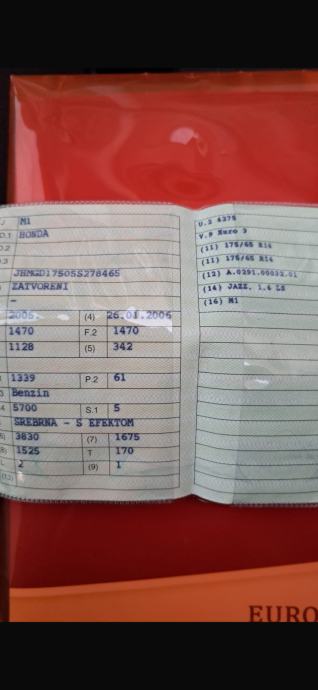 J M1
D.1 HONDA
D.2
D.3
JHMGD17505S278465
ZATVORENI
–
2005. (4) 26.01.2006
1470 F.2 1470
1128 (5) 342
1339 P.2 61
Benzin
5700 S.1 5
SREBRNA - S EFEKTOM
3830 (7) 1675
1525 T 170
2 (9) 1
U.2 4275
V.9 Euro 3
(11) 175/65 R14
(11) 175/65 R14
(12)
(14) JAZZ, 1.4 LS
(16) M1
EURO